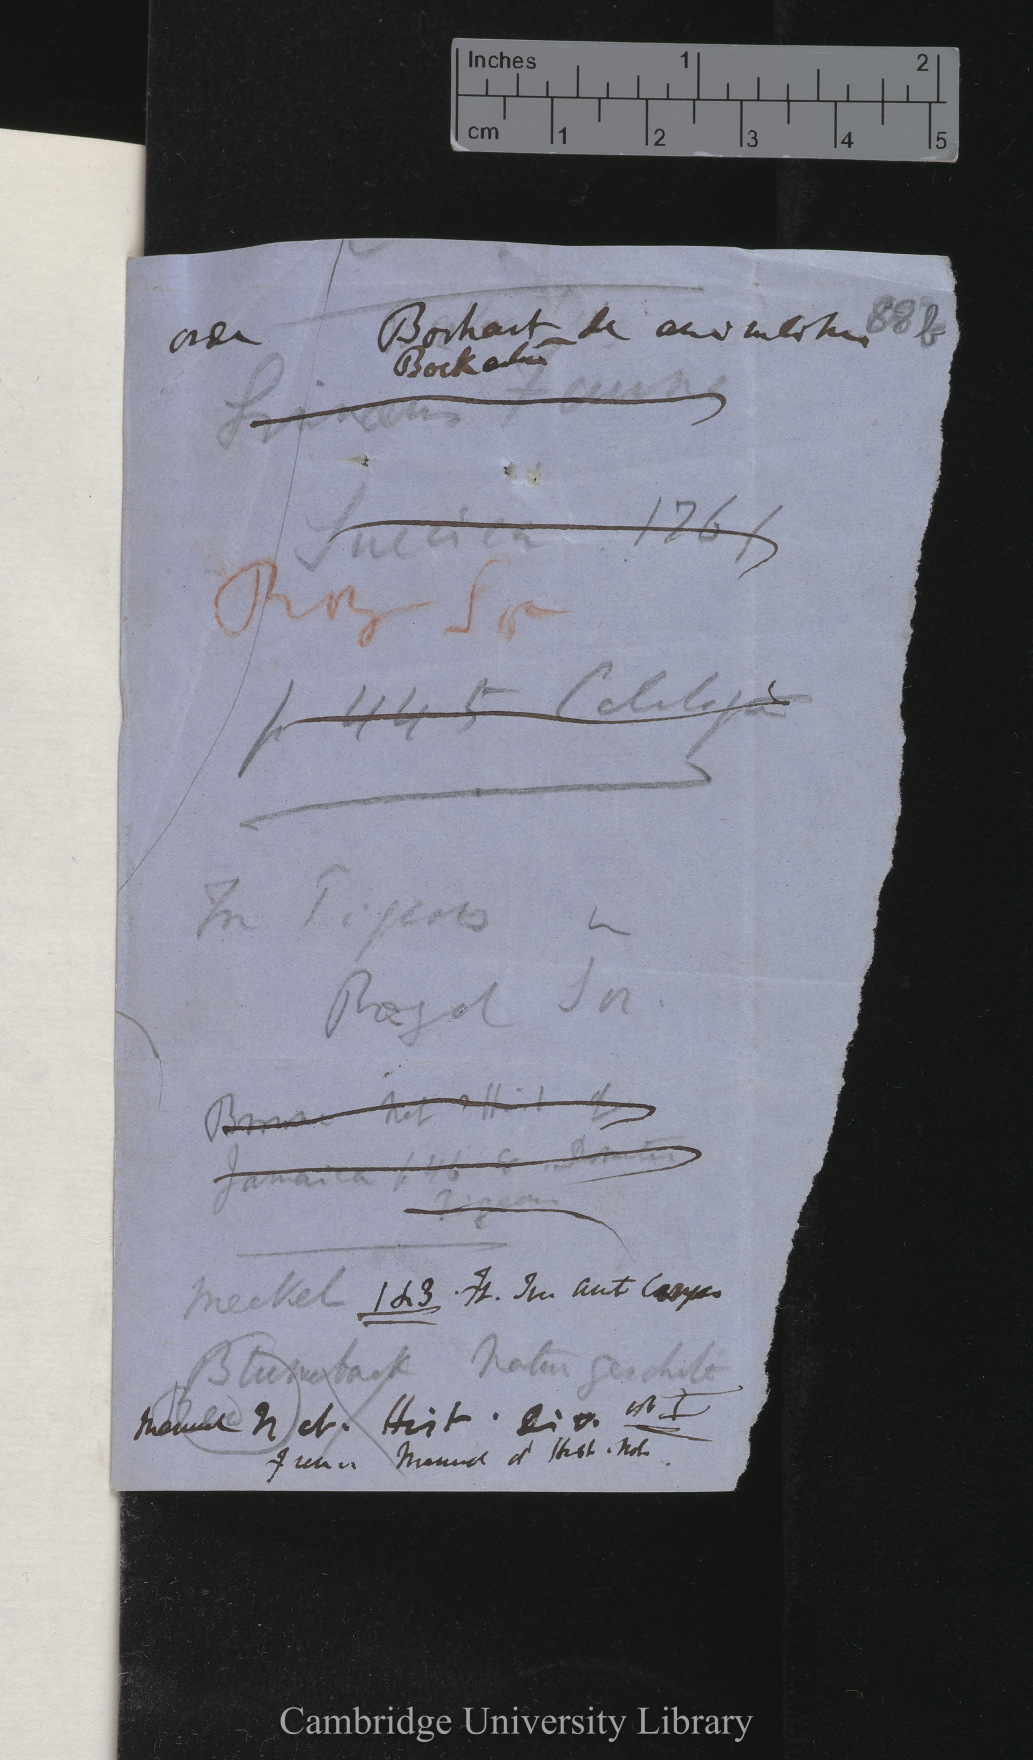 Inches 1 2
cm 1 2 3 4 5
88b
order Bochart de animalibus
Linnæus Fauna
Suecica 1761
Roy Soc
p 445 Catalogue
In Pigeons in
Royal Soc.
Browne Nat Hist of
Jamaica p 46 Domestic
Pigeon
Meckel 1 & 3 Ft. In Ant Comp
Blumenback Natur geschite
Manuel Nat. Hist. vol I
French Manuel d' Hist. Nat.
Cambridge University Library